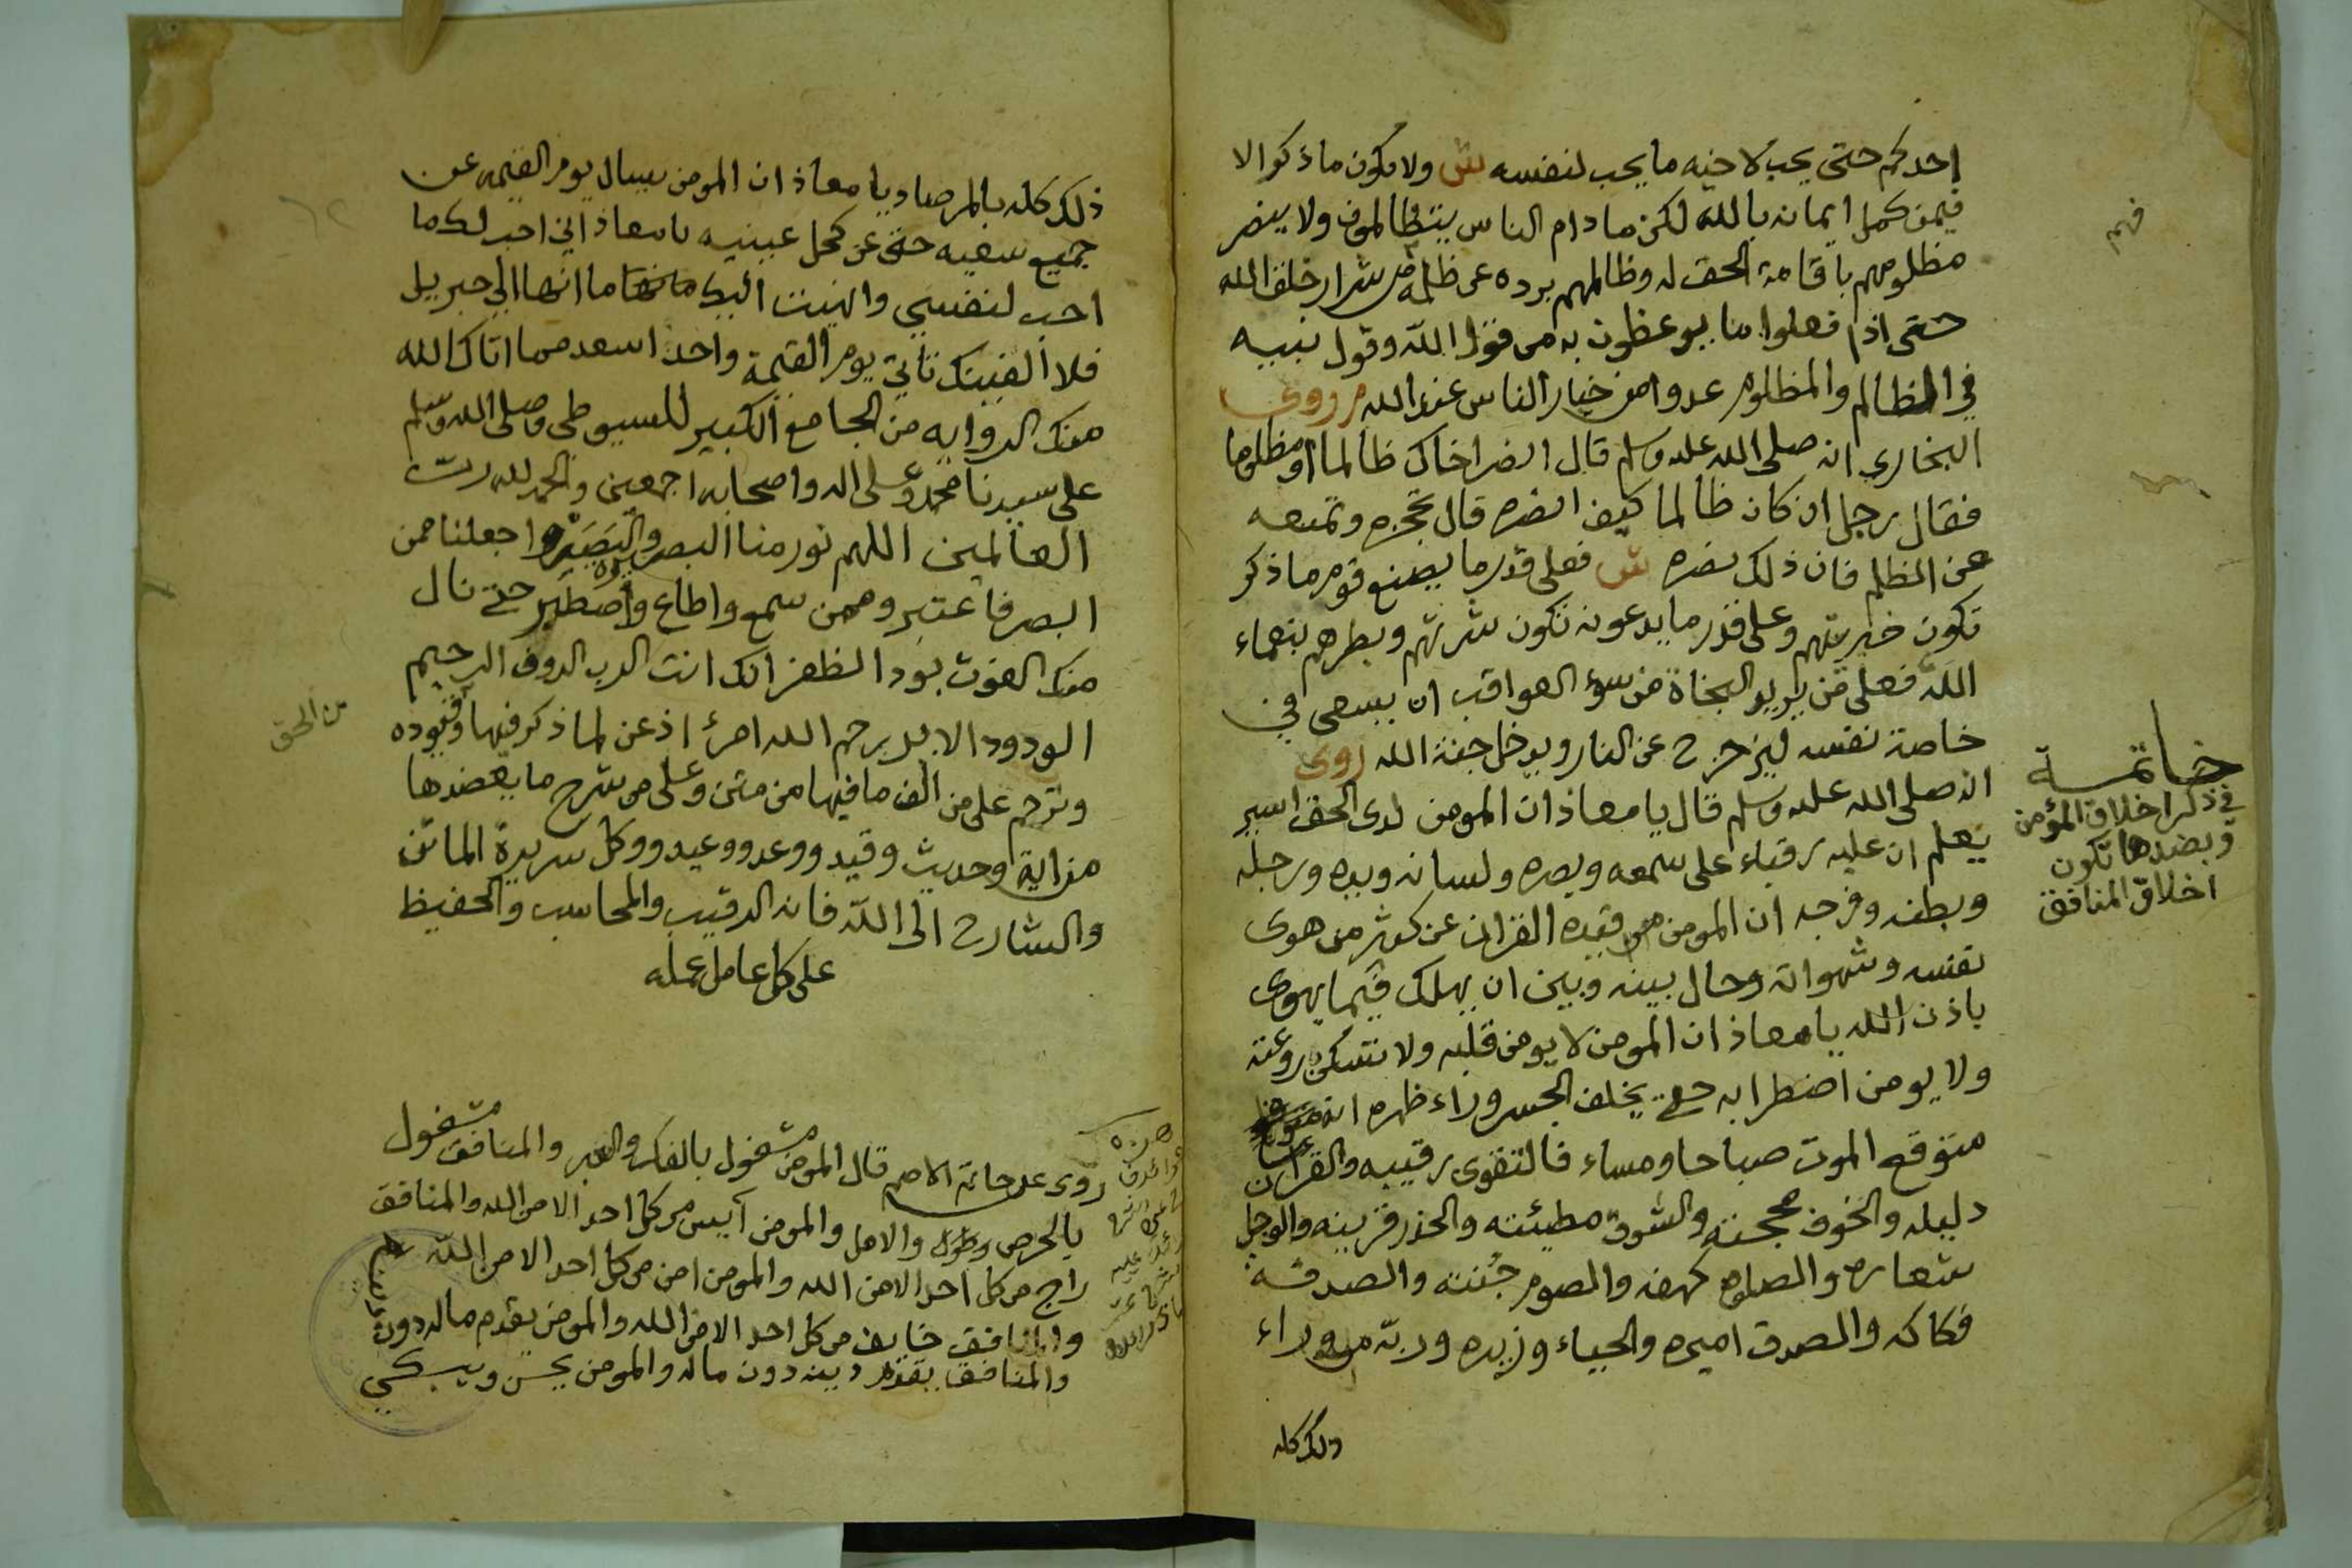 احدكم حتى يحب لاخيه ما يحب لنفسه ش ولا يكون ما ذكر الا
فيمن كمل ايمانه بالله لكن ما دام الناس يتظالمون ولا ينصر
مظلومهم باقامة الحق له وظالمهم برده عن ظلمه من شرار خلق الله
حتى اذا فعلوا ما يوعظون به من قول الله وقول نبيه
في الظالم والمظلوم عدوا من خيار الناس عند الله م روى
البخاري انه صلى الله عليه وسلم قال انصر اخاك ظالما او مظلوما
فقال رجل ان كان ظالما كيف انصره قال تحجزه وتمنعه
عن الظلم فان ذلك نصره ش فعلى قدر ما يصنع قوم ما ذكر
تكون خيريتهم وعلى قدر ما يدعونه تكون شريتهم وبطرهم بنعماء
الله فعلى من يريد النجاة من سوء العواقب ان يسعى في
خاصة نفسه ليزحزح عن النار ويدخل جنة الله روى
انه صلى الله عليه وسلم قال يا معاذ ان المومن لدى الحق اسير
يعلم ان عليه رقباء على سمعه وبصره ولسانه ويده ورجله
وبطنه وفرجه ان المومن قيده القران عن كثير من هوى
نفسه وشهواته وحال بينه وبين ان يهلك فيما يهوى
باذن الله يا معاذ ان المومن لا يومن قلبه ولا تسكن روعته
ولا يومن اضطرابه حتى يخلف الجسر وراء ظهره انه
متوقع الموت صباحا ومساء فالتقوى رقيبه والقران
دليله والخوف محجته والشوق مطيئته والحذر قرينه والوجل
شعاره والصلوة كهفه والصوم جنته والصدقة
فكاكه والصدق اميره والحياء وزيره وربه من وراء
ذلك كله
فهم
خاتمة
في ذكر اخلاق المؤمن
وبضدها تكون
اخلاق المنافق
ذلك كله بالمرصاد يا معاذ ان المومن يسال يوم القيمه عن
جميع سعيه حتى عن كحل عينيه يا معاذ اني احب لك ما
احب لنفسي وانهيت اليك ما انها الي جبريل
فلا الفينك تاتي يوم القيمة واحد اسعد مما اتاك الله
منك الروايه من الجامع الكبير للسيوطي وصلى الله وسلم
على سيدنا محمد وعلى اله واصحابه اجمعين والحمد لله رب
العالمين اللهم نور منا البصر والبصيره واجعلنا ممن
ابصر فاعتبر وممن سمع واطاع واصطبر حتى نال
منك الفوت بود الظفر انك انت الرب الروف الرحيم
الودود الا بلا يرحم الله امرأ اذعن لما ذكر فيها وقيوده
وترحم على من الف ما فيها من متن وعلى من شرح ما يعضدها
من اية وحديث وقيد ووعد ووعيد ووكل سريرة الماتن
والشارح الى الله فانه الرقيب والمحاسب والحفيظ
على كل عامل عمله
من الحق
روى عن حاتم الاصم قال المومن مشغول بالفكر والعبر والمنافق مشغول
بالحرص والامل والمومن آيس من كل احد الا من الله والمنافق
راج من كل احد الا من الله والمومن امن من كل احد الا من الله
والمنافق خايف من كل احد الا من الله والمومن يقدم ماله دون دينه
والمنافق يقدم دينه دون ماله والمومن يحسن ويبكي